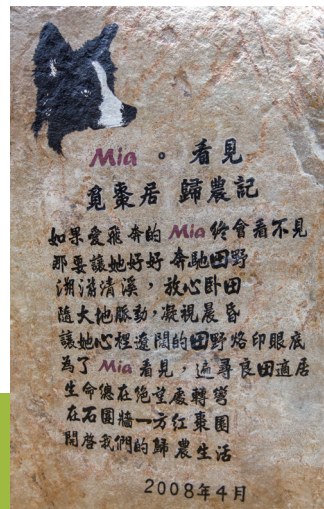 Mia。看見
覓棗居 歸農記
如果愛飛奔的 Mia 終會看不見
那要讓她好好 奔馳田野
溯游清溪，放心臥田
隨大地脈動，凝視晨昏
讓她心裡遼闊的田野烙印眼底
為了 Mia 看見，遍尋良田適居
生命總在絕望處轉彎
在石圍牆一方紅棗園
開啓我們的歸農生活
2008年4月